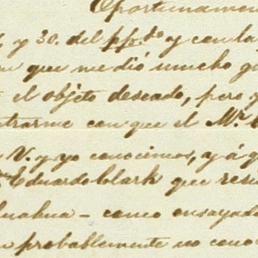 Oportunamen
y 30. del ppdo y con la
que me dió mucho gu
el objeto deseado, pero y
trarme con que el Mr.
V. y yo conocimos, y á q
Eduardo Clark que resi
huahua - como ensayado
probablemente no cono